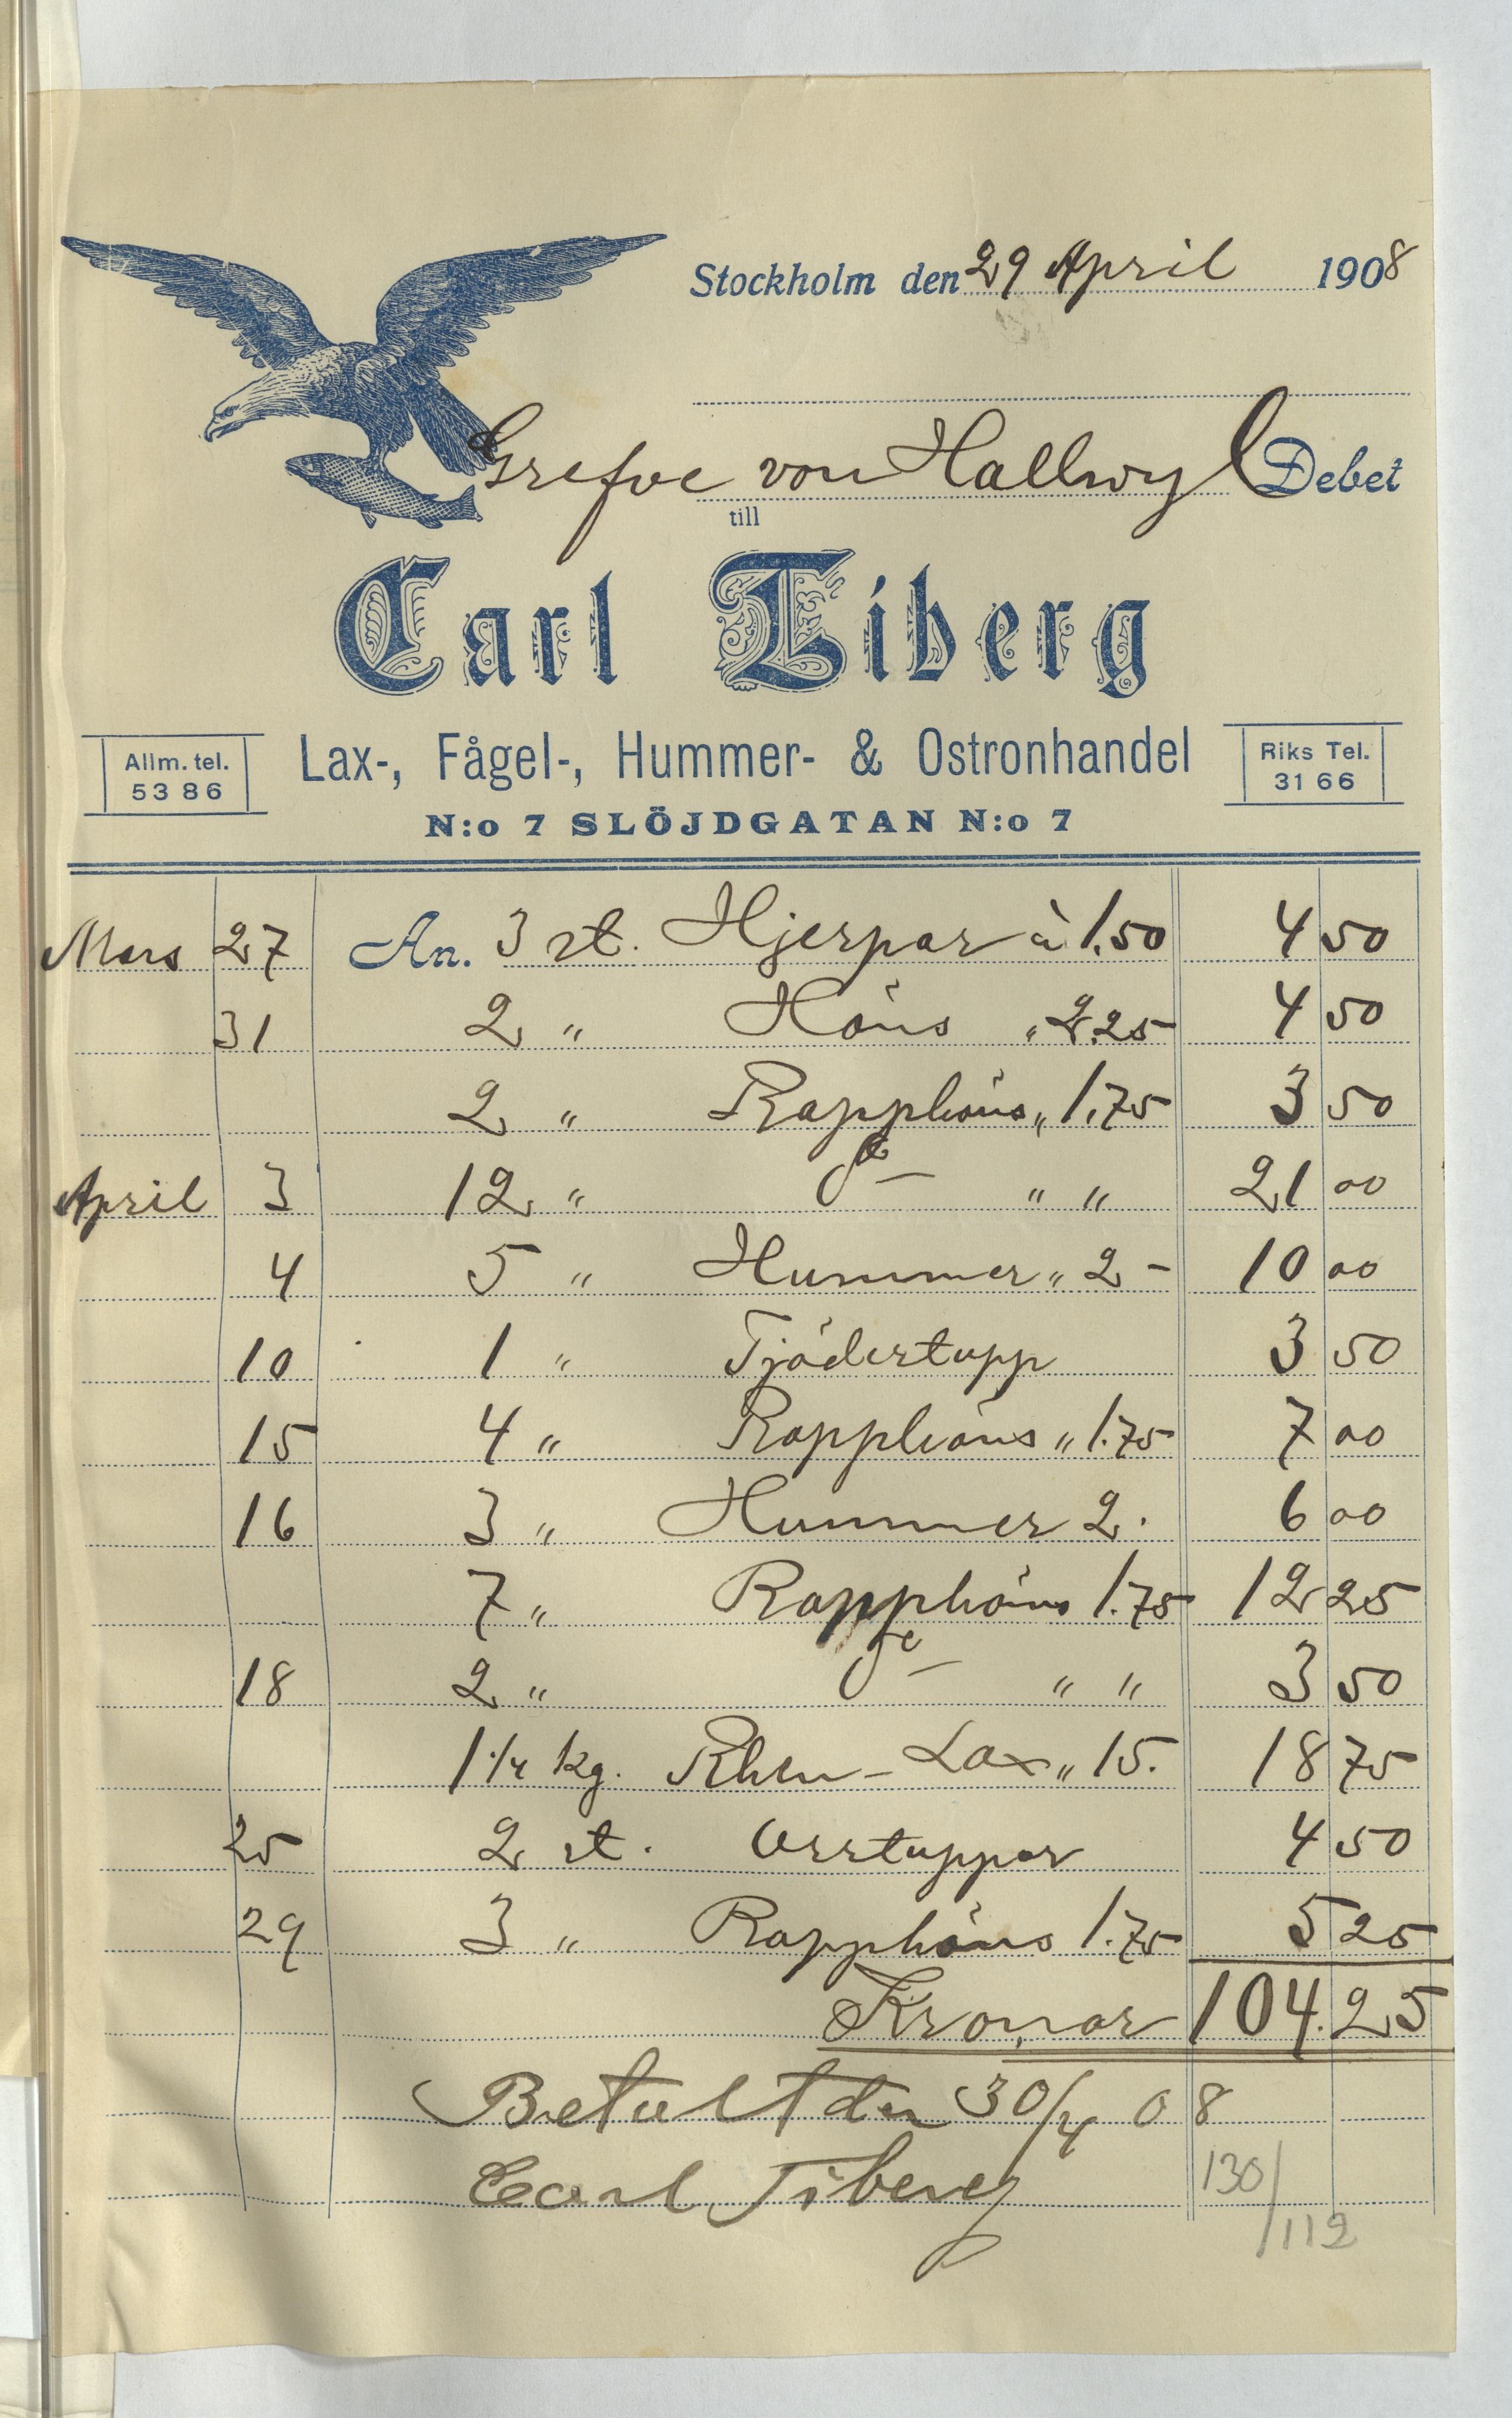 Stockholm den 29 April 1908
Grefve von Hallwyl Debet
till
Carl Tiberg
Allm. tel. 53 86
Lax-, Fågel-, Hummer- & Ostronhandel
Riks Tel. 31 66
N:o 7 SLÖJDGATAN N:o 7
Mars 27 An. 3 st. Hjerpar à 1.50 4 50
31 2 " Höns " 2.25 4 50
2 " Rapphöns " 1.75 3 50
April 3 12 " do " " 21 00
4 5 " Hummer " 2 - 10 00
10 1 " Tjädertupp 3 50
15 4 " Rapphöns " 1.75 7 00
16 3 " Hummer 2. 6 00
7 " Rapphöns 1.75 12 25
18 2 " do " " 3 50
1 1/4 kg. Rhen-Lax " 15. 18 75
25 2 st. Orrtuppar 4 50
29 3 " Rapphöns 1.75 5 25
Kronor 104.25
Betalt den 30/4 08
Carl Tiberg
130/112